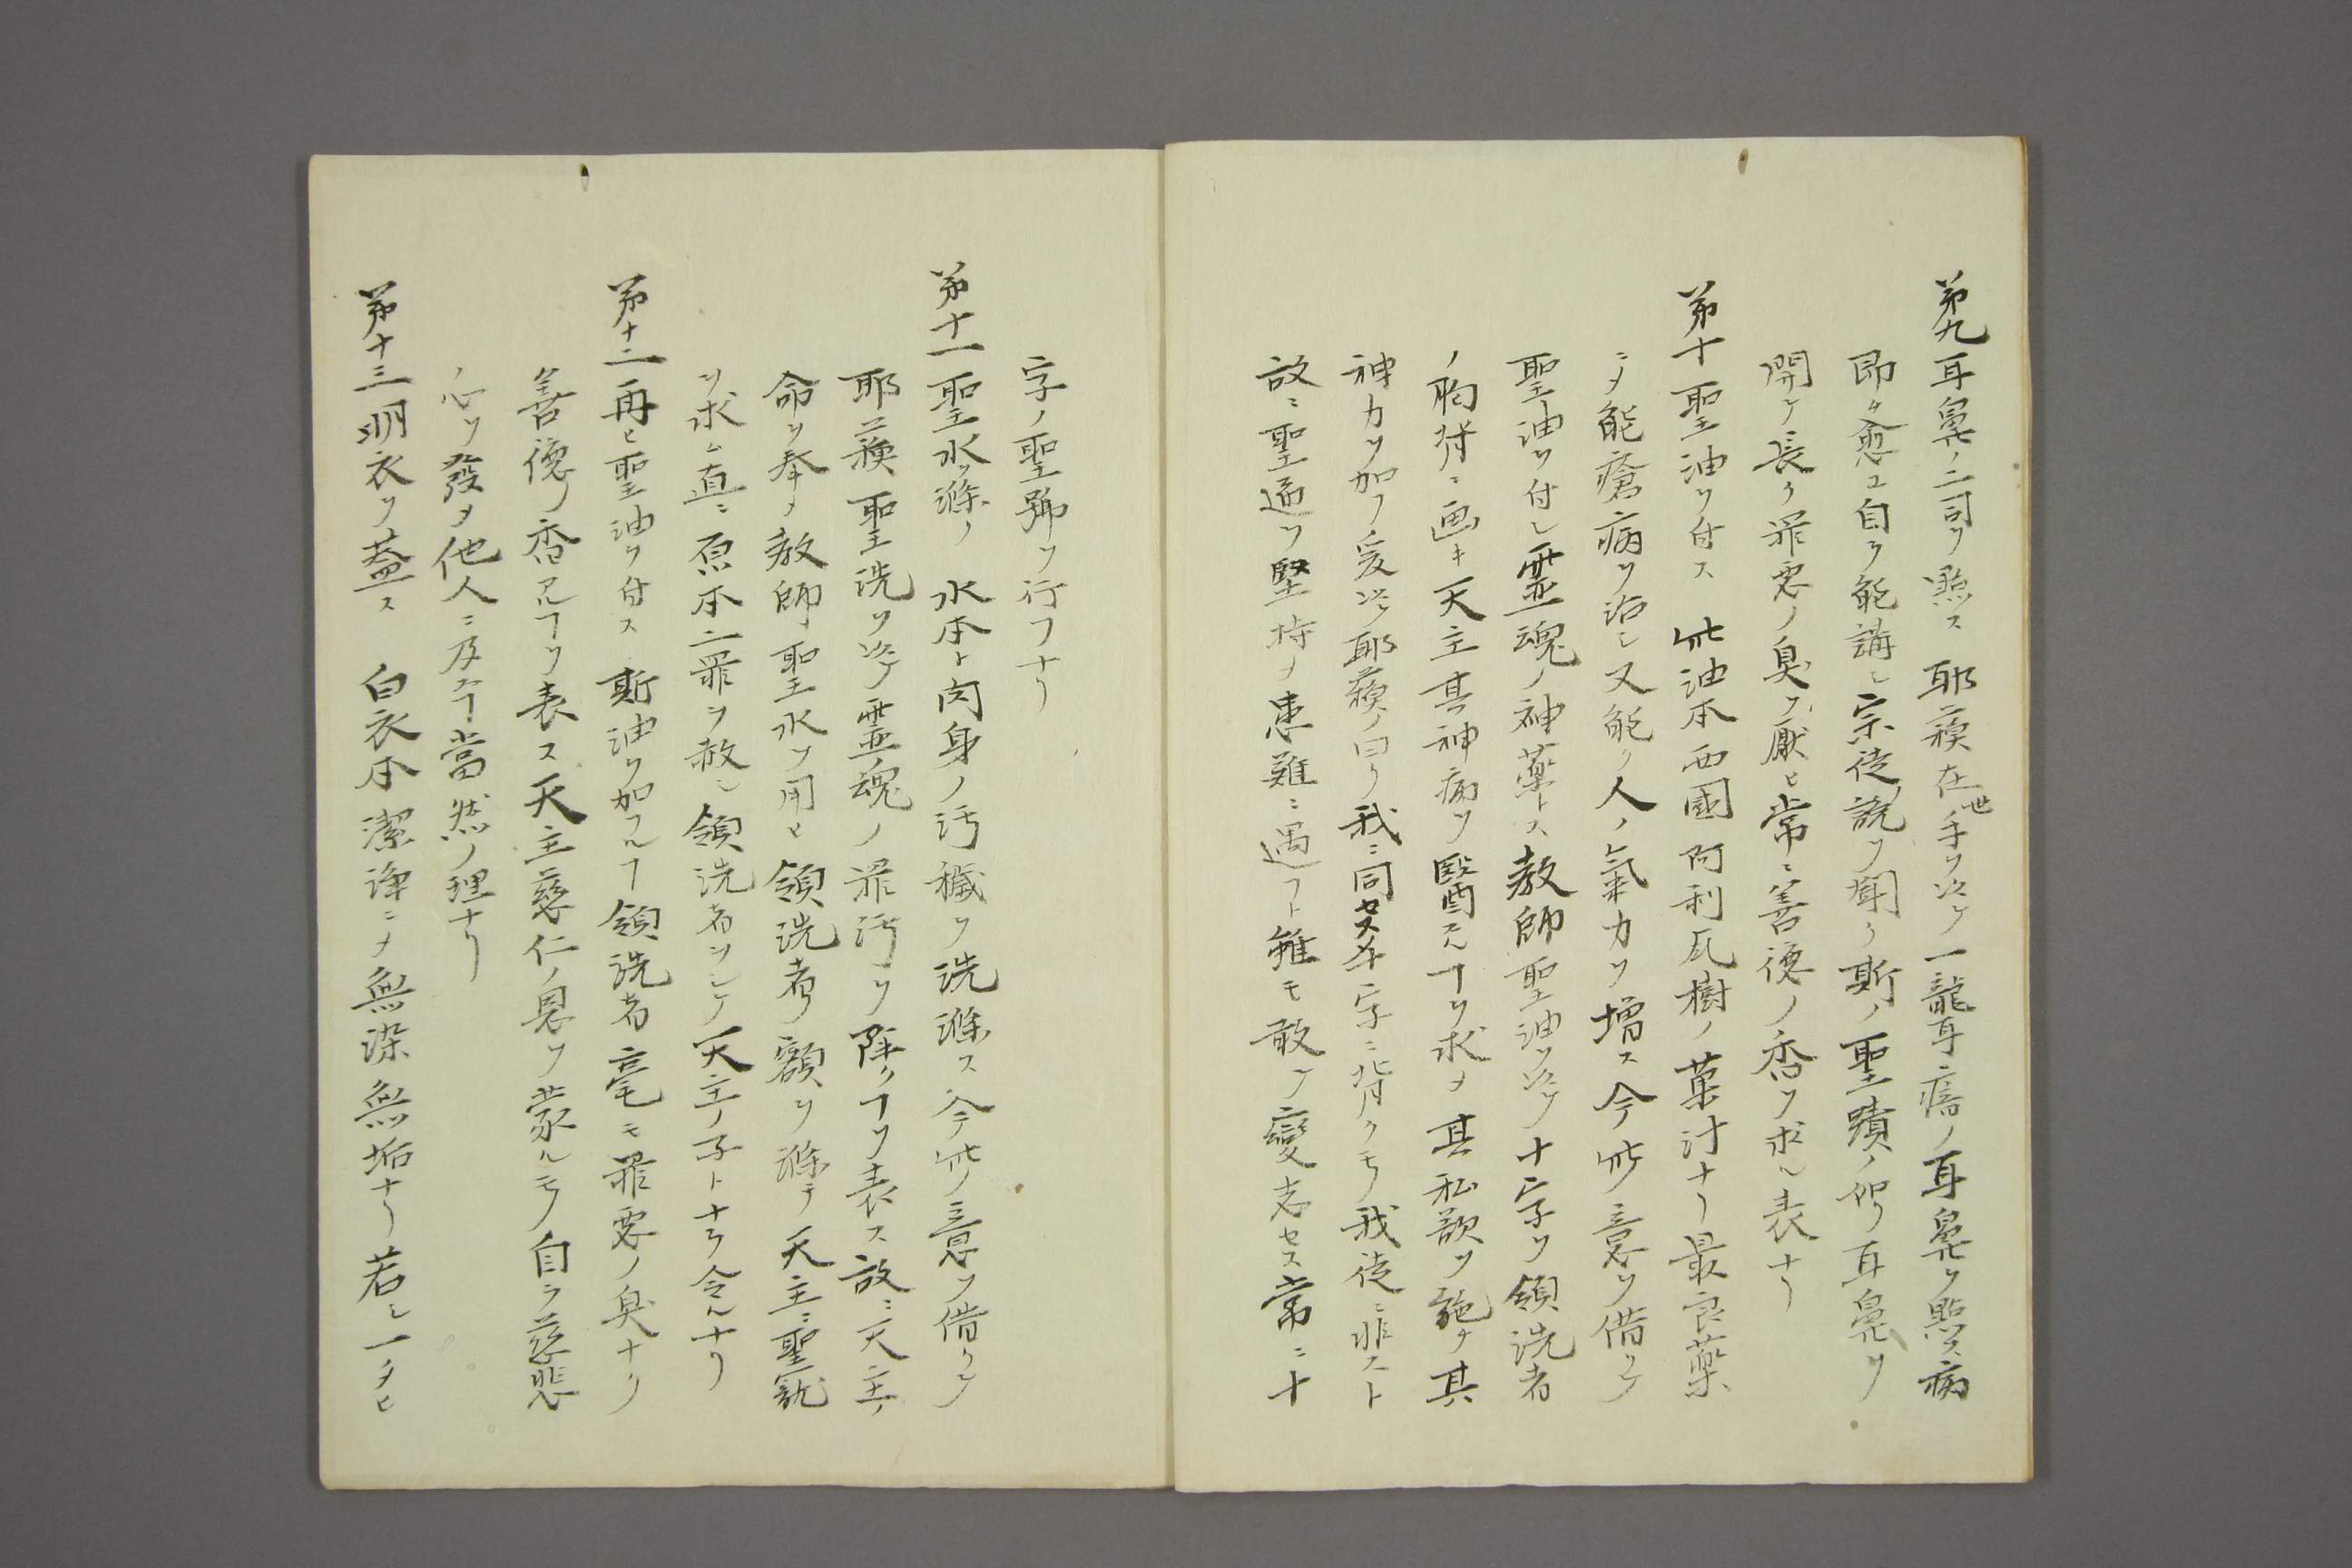 第九耳鼻ノ二司ヲ點ス 耶蘓在世手ヲ以テ一聾耳瘖ノ耳鼻ヲ點ス病
即々愈ユ自ラ能講シ宗徒説ヲ聞ク斯ノ聖蹟ノ仰ヲ耳鼻ヲ
開ケ長ク罪悪ノ臭ヲ厭ヒ常ニ善德ノ香ヲ求ル表ナリ
第十聖油ヲ付ス 此油本西國阿利瓦樹ノ菓汁ナリ最良藥
ニメ能瘡病ヲ治シ又能ク人ノ氣力ヲ増ス今此意ヲ借リテ
聖油ヲ付シ靈魂ノ神藥トス教師聖油ヲ以テ十字ヲ領洗者
ノ胸背ニ画キ天主其神病ヲ醫スルヿヲ求メ其私欲ヲ施ク其
神力ヲ加フ爰以テ耶蘓ノ曰ク我ニ同セス斗字ニ背クモノ我徒ニ非スト
故ニ聖適ヲ堅持メ患難ニ遇フト雖モ敢テ變志セス常ニ十
字ノ聖號ヲ行フナリ
第十一聖水ヲ滌ク 水本ト肉身ノ汚穢ヲ洗滌ス今此ノ意ヲ借リテ
耶蘓聖洗ヲ以テ靈魂ノ罪汚ヲ除クヿヲ表ス故ニ天主ノ
命ヲ奉メ教師聖水ヲ用ヒ領洗者ノ額ヲ滌テ天主ニ聖寵
ヲ求ム直ニ原本二罪ヲ赦シ領洗者ヲシテ天主ノ子トナラ令ルナリ
第十二再ヒ聖油ヲ付ス 斯油ヲ加フルヿ領洗者毫モ罪悪ノ臭ナリ
善德ノ香アルヿヲ表ス天主慈仁ノ恩ヲ蒙ルモノ自ラ慈悲
ノ心ヲ發メ他人ニ及スヿ當然ノ理ナリ
第十三明衣ヲ葢ス 白衣本潔淨ニメ無染無垢ナリ若シ一タヒ